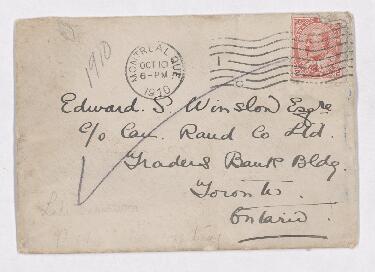 1910
MONTREAL, QUE.
OCT 10
6-PM
1910
1
Edward. S. Winslow Esqre
c/o Can. Rand Co Ltd.
Traders Bank Bldg.
Toronto.
Ontario.